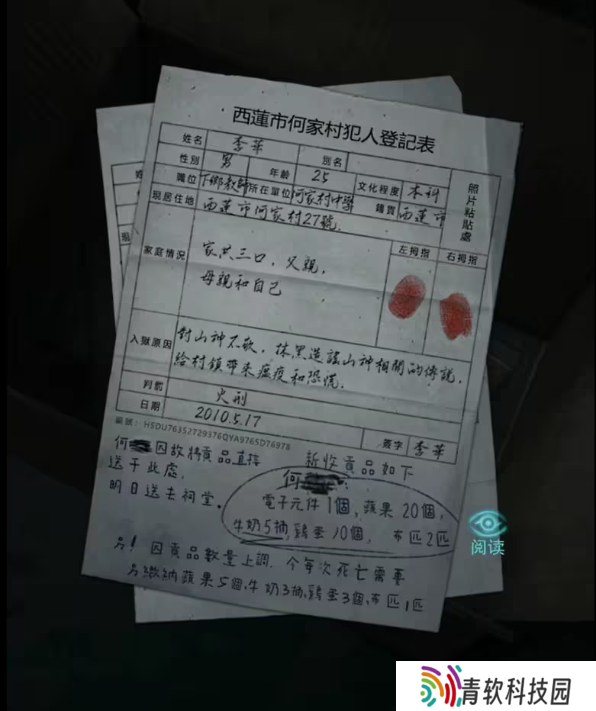 西蓮市何家村犯人登記表
姓名 李華 別名
性別 男 年齡 25 文化程度 本科
職位 下鄉教師 所在單位 何家村中學 籍貫 西蓮市
照片粘貼處
現居住地 西蓮市何家村27號.
家庭情況 家共三口，父親， 左拇指 右拇指
母親和自己
入獄原因 對山神不敬，抹黑造謠山神相關的傳說，
給村鎮帶來瘟疫和恐慌.
判罰 火刑
日期 2010.5.17
編號：HSDU76352729376QYA9765D76978 簽字 李華
何 因故将貢品直接
送于此處，
明日送去祠堂。
新收貢品如下
何
電子元件1個，蘋果20個，
牛奶5抽，鷄蛋10個， 布匹2匹
另！因貢品數量上調，今每次死亡需要
另繳納蘋果5個，牛奶3抽，鷄蛋3個，布匹1匹
阅读
青软科技园